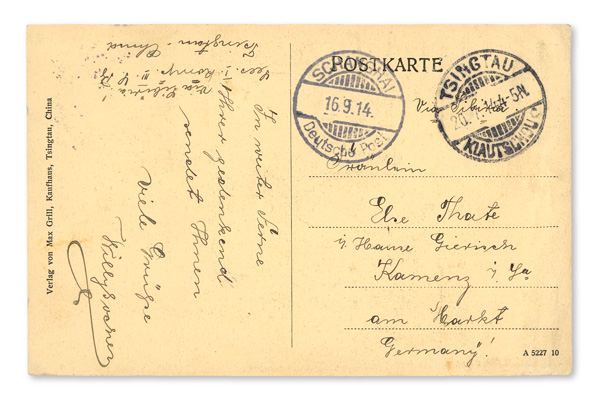 POSTKARTE
SCHANGHAI
16.9.14.
Deutsche Post
TSINGTAU
KIAUTSCHOU
Via Sibiria
Fräulein
Else Thate
i/ Hause Gierisch
Kamenz i/ Sa
am Markt
Germany!
In weiter Ferne
Ihrer gedenkend
sendet Ihnen
Viele Grüße
Willy
Tsingtau - China
Via Sibiria
Verlag von Max Grill, Kaufhaus, Tsingtau, China
A 5227 10